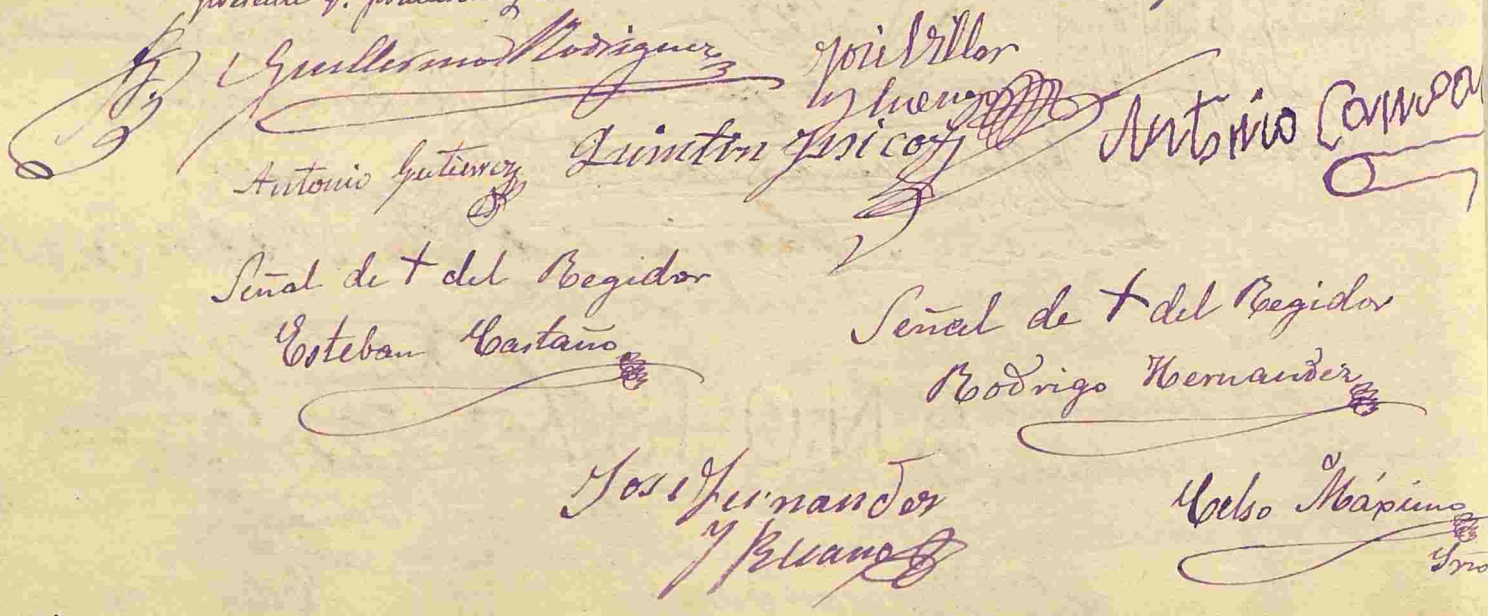 Guillermo Rodriguez
José Villar
y Luengo
Antonio Gutierrez
Quintin
Antonio
Señal de + del Regidor
Esteban Castaño
Señal de + del Regidor
Rodrigo Hernandez
Jose Fernandez
y
Celso Máximo
Srio